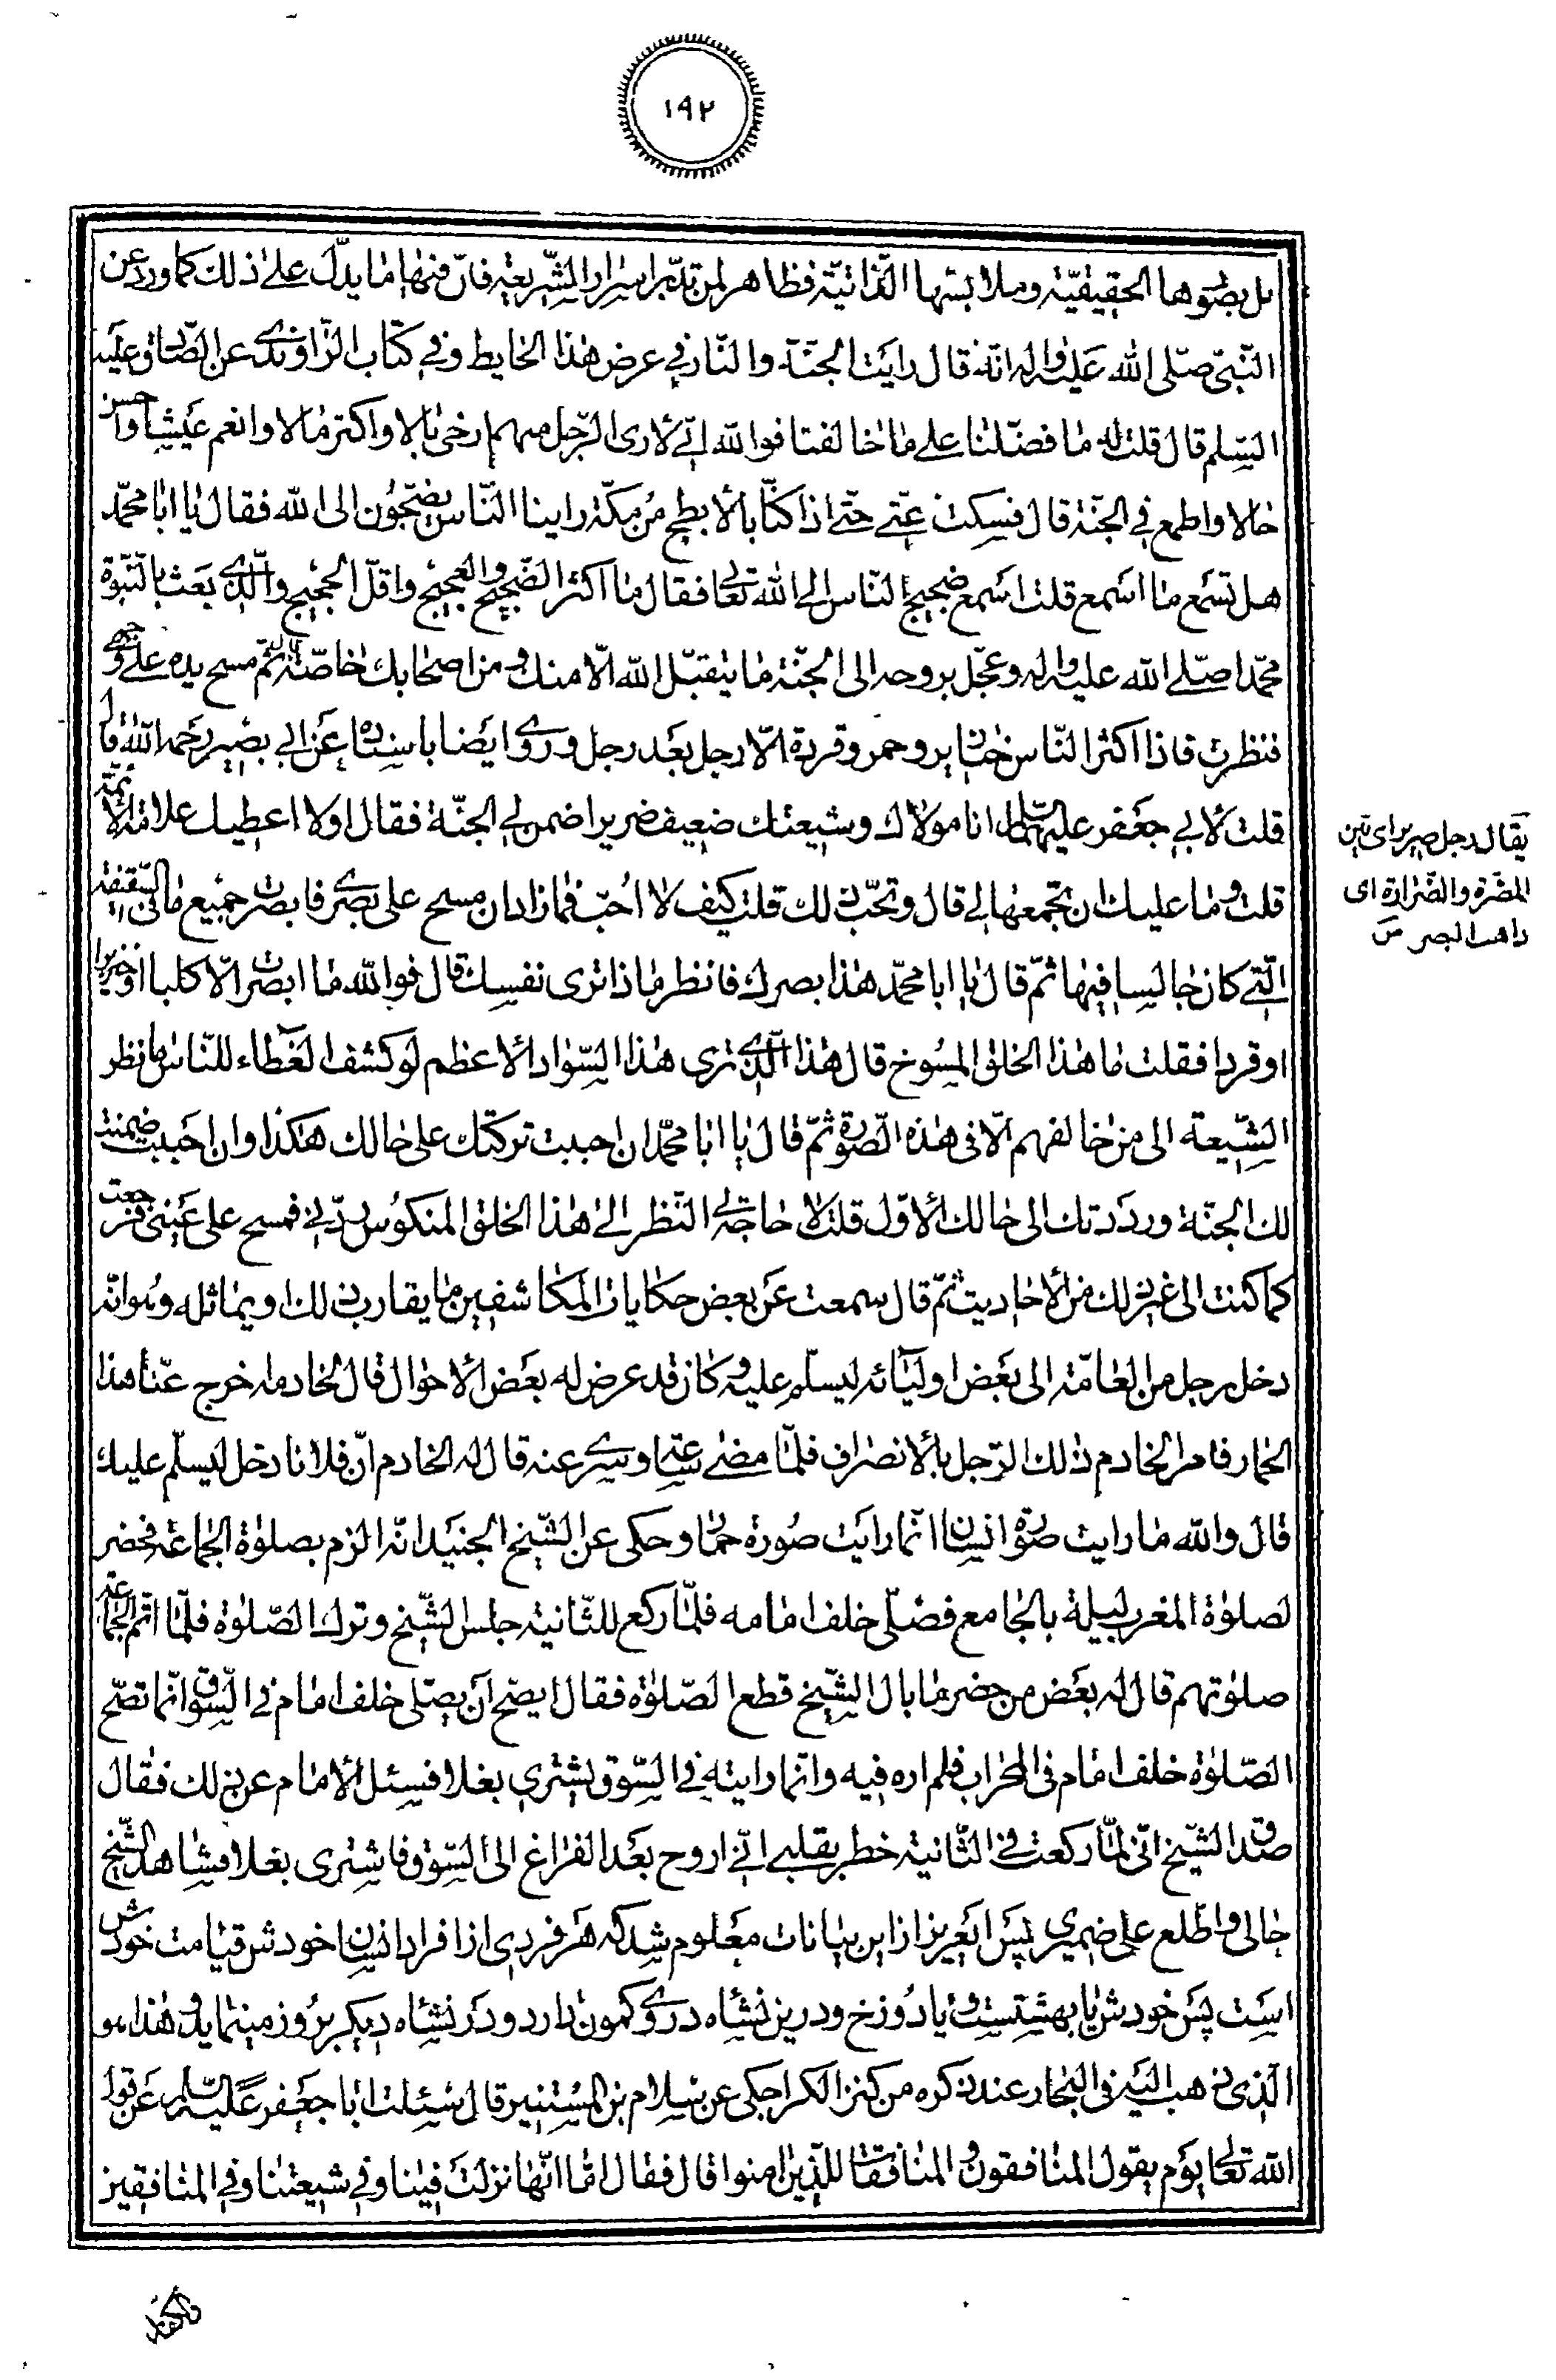 ١٩٢
بل بصورها الحقيقيّة وملابستها الذّاتيّة فظاهر لمن تدبّر اسرار الشّريعة فانّ فيها ما يدلّ على ذلك كما ورد عن
النّبىّ صلّى الله عليه واله انّه قال رايت الجنّة والنّار فى عرض هذا الحايط وفى كتاب الرّاوندى عن الصّادق عليه
السّلم قال قلت له ما فضّلنا على ما خالفنا فوالله انّى لأرى الرّجل منهم ارخى بالا واكثر مالا وانعم عيشا واحسن
حالا واطمع فى الجنّة قال فسكت عنّى حتّى اذا كنّا بالأبطح من مكّة راينا النّاس يضجّون الى الله فقال يا ابا محمّد
هل تسمع ما اسمع قلت اسمع ضجيج النّاس الى الله تعالى فقال ما اكثر الضّجيج والعجيج واقلّ الحجيج والّذى بعث بالنّبوّة
محمّدا صلّى الله عليه واله وعجّل بروحه الى الجنّة ما يتقبّل الله الّا منك ومن اصحابك خاصّة قال ثمّ مسح يده على وجهى
فنظرت فاذا اكثر النّاس خنازير وحمر وقردة الّا رجل بعد رجل وروى ايضا باسناده عن ابى بصير رحمه الله قال
قلت لأبى جعفر عليهما السّلام انا مولاك وشيعتك ضعيف ضرير اضمن لى الجنّة فقال اولا اعطيك علامة الائمّة
قلت وما عليك ان تجمعها لى قال وتحبّ ذلك قلت كيف لا احبّ فما زاد ان مسح على بصرى فابصرت جميع ما فى السّقيفة
الّتى كان جالسا فيها ثمّ قال يا ابا محمّد هذا بصرك فانظر ماذا ترى نفسك قال فوالله ما ابصرت الّا كلبا او خنزيرا
او قردا فقلت ما هذا الخلق الممسوخ قال هذا الّذى ترى هذا السّواد الأعظم لو كشف الغطاء للنّاس ما نظر
الشّيعة الى من خالفهم الّا فى هذه الصّورة ثمّ قال يا ابا محمّد ان احببت تركتك على حالك هكذا وان احببت ضمنت
لك الجنّة ورددتك الى حالك الأوّل قلت لا حاجة لى النّظر الى هذا الخلق المنكوس ردّنى فمسح على عينى فرجعت
كما كنت الى غير ذلك من الأحاديث ثمّ قال سمعت عن بعض حكايات المكاشفين ما يقارب ذلك او يماثله وهو انّه
دخل رجل من العامّة الى بعض اوليائه ليسلّم عليه وكان قد عرض له بعض الأحوال قال لخادمه خرج عنّا هذا
الحمار فامر الخادم ذلك الرّجل بالأنصراف فلمّا مضى ساعة وسرى عنه قال له الخادم انّ فلانا دخل ليسلّم عليك
قال والله ما رايت صورة انسان انّما رايت صورة حمار وحكى عن الشّيخ الجنيد انّه الزم بصلوة الجماعة فحضر
لصلوة المغرب ليلة بالجامع فصلّى خلف امامه فلمّا ركع للثّانية جلس الشّيخ وترك الصّلوة فلمّا اتمّ الجماعة
صلوتهم قال له بعض من حضر ما بال الشّيخ قطع الصّلوة فقال ايصحّ ان يصلّى خلف امام فى السّوق انّما تصحّ
الصّلوة خلف امام فى المحراب فلم اره فيه وانّما رايته فى السّوق يشترى بغلا فسئل الأمام عن ذلك فقال
صدق الشّيخ انّى لمّا ركعت فى الثّانية خطر بقلبى انّى اروح بعد الفراغ الى السّوق فاشترى بغلا فشاهد الشّيخ
حالى واطّلع على ضميرى پس ايعزيز از اين بيانات معلوم شد كه هر فردى از افراد انسان خودش قيامت خودش
است پس خودش يا بهشتست ويا دوزخ ودرين نشاه در وى كمون دارد ودر نشاه ديگر بروز مينمايد وهذا هو
الّذى ذهب اليه فى البحار عند ذكره من كنز الكراجكى عن سلام بن المستنير قال سئلت ابا جعفر عليه السّلم عن قول
الله تعالى يوم يقول المنافقون والمنافقات للّذين امنوا قال فقال اما انّها نزلت فينا وفى شيعتنا وفى المنافقين
يقال رجل ضرير اى بيّن
المضرّة والضّرارة اى
ذاهب البصر